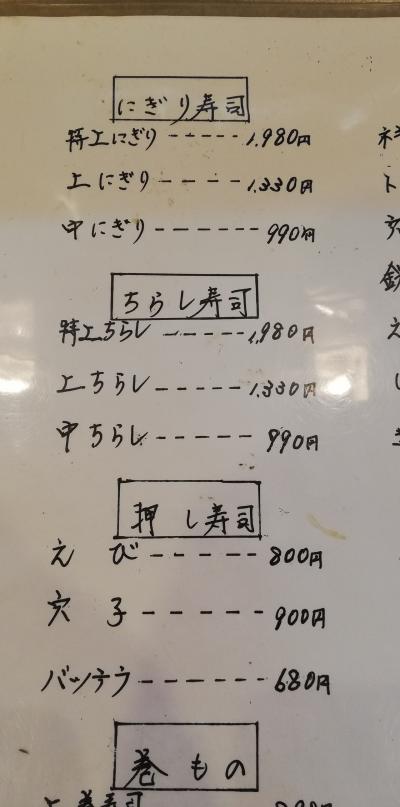 にぎり寿司
特上にぎり-----1,980円
上にぎり-----1,330円
中にぎり------990円
ちらし寿司
特上ちらし-----1,980円
上ちらし-----1,330円
中ちらし------990円
押し寿司
えび------800円
穴子------900円
バッテラ-------680円
巻もの
上巻寿司